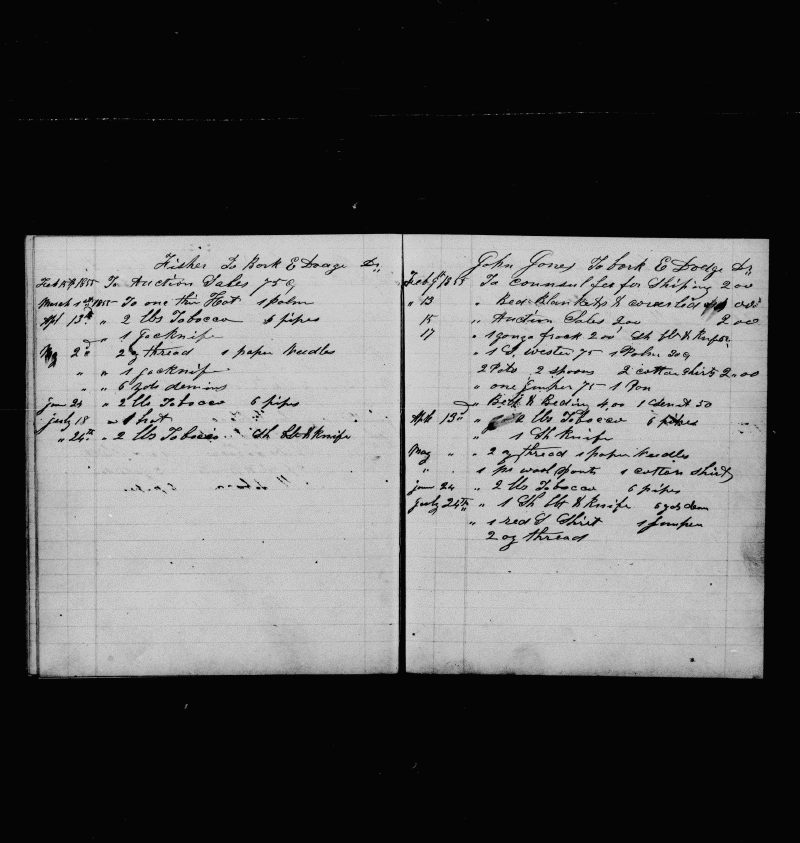 Fisher To Bark E Dodge Dr
Feb 15th 1855 To Auction Sales 75 c
March 1st 1855 To one thin Hat 1 palm
Apl 13th " 2 lbs Tobacco 6 pipes
" 1 Jacknife
May 2d " 2 oz thread 1 paper Needles
" " 1 jacknife
" " 6 yds denims
jun 24 " 2 lbs Tobacco 6 pipes
july 18 " 1 hat
" 24th " 2 lbs Tobacco Sh blt & Knife
John Jones To bark E Dodge Dr
Feb 1855 To counsul fees for Shiping 2 00
" 13 " Bed Blankets &
15 " Auction Sales 2 00 2 00
17 " 1 gonga frock 2 00 Sh blt & Knife
" 1 S. wester 75 1 Palm 20 c
2 Pots 2 spoons 2 cotton shirts 2.00
" one jumper 75 1 Pan
" Belt & Beding 4,00 1 50
Apl 13d " 2 lbs Tobacco 6 pipes
" 1 Sh Knife
May " " 2 oz thread 1 paper Needles
" " 1 pr wool pants 1 cotton shirt
jun 24 " 2 lbs Tobacco 6 pipes
july 24th " 1 Sh blt & Knife 6 yds denm
" 1 red S Shirt 1 jumper
2 oz thread